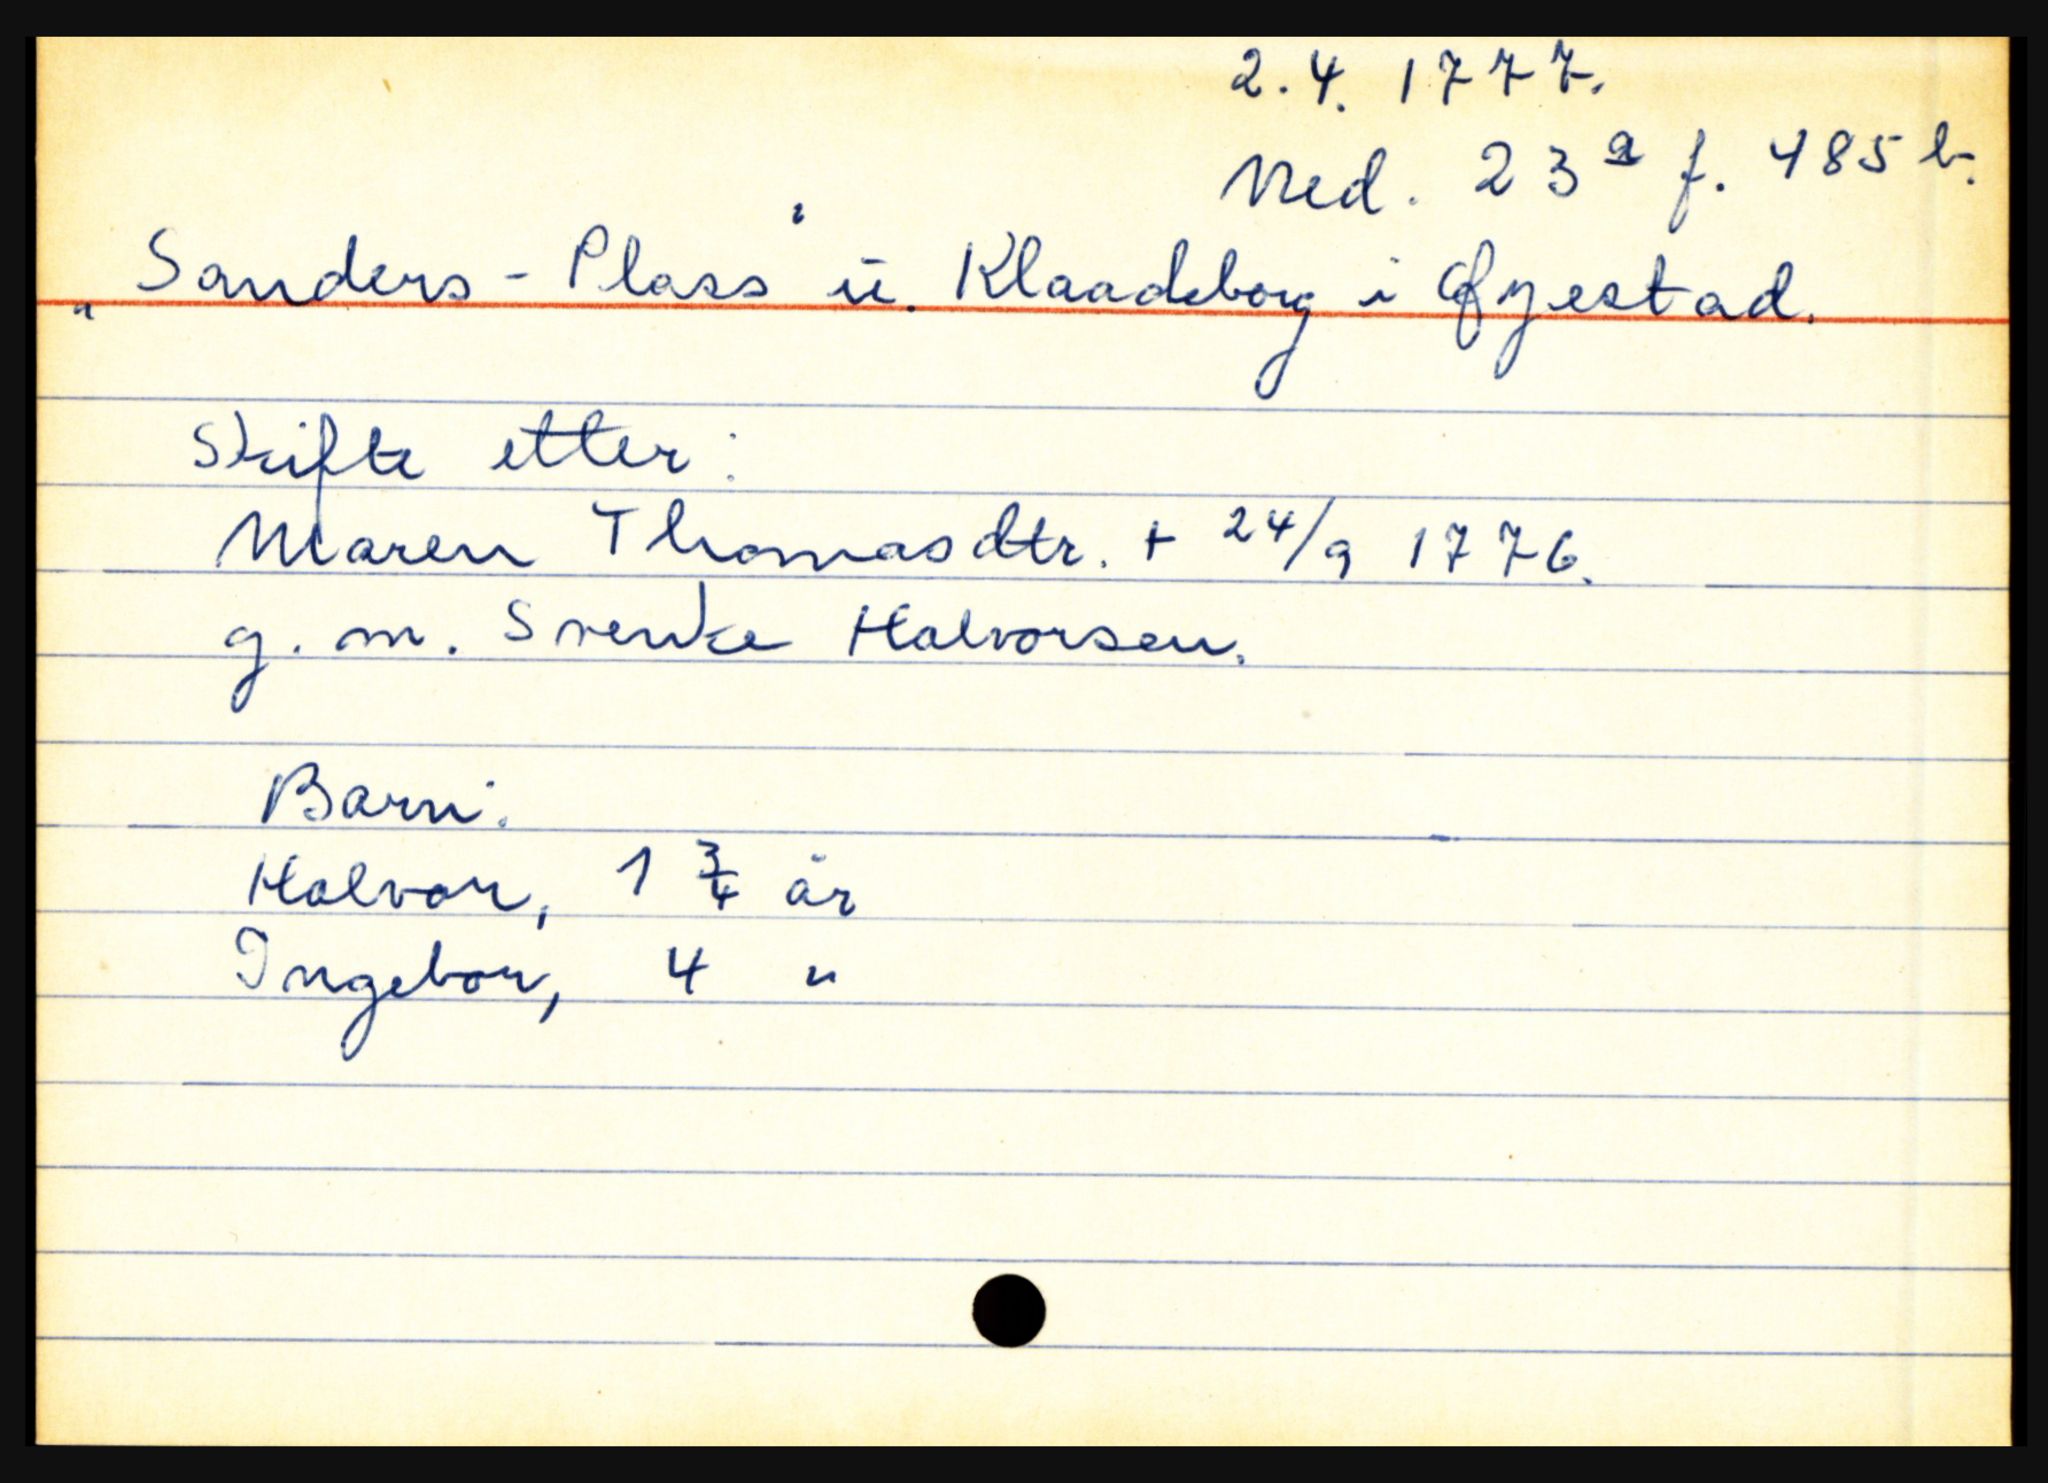 2.4. 1777.
Ned. 23a f. 485 b.
"Sanders-Plass" u. Klaadeborg i Øyestad.
Skifte etter:
Maren Thomasdtr. + 24/9 1776.
g. m. Svenke Halvorsen.
Barn:
Halvor, 1 3/4 år
Ingebor, 4 "